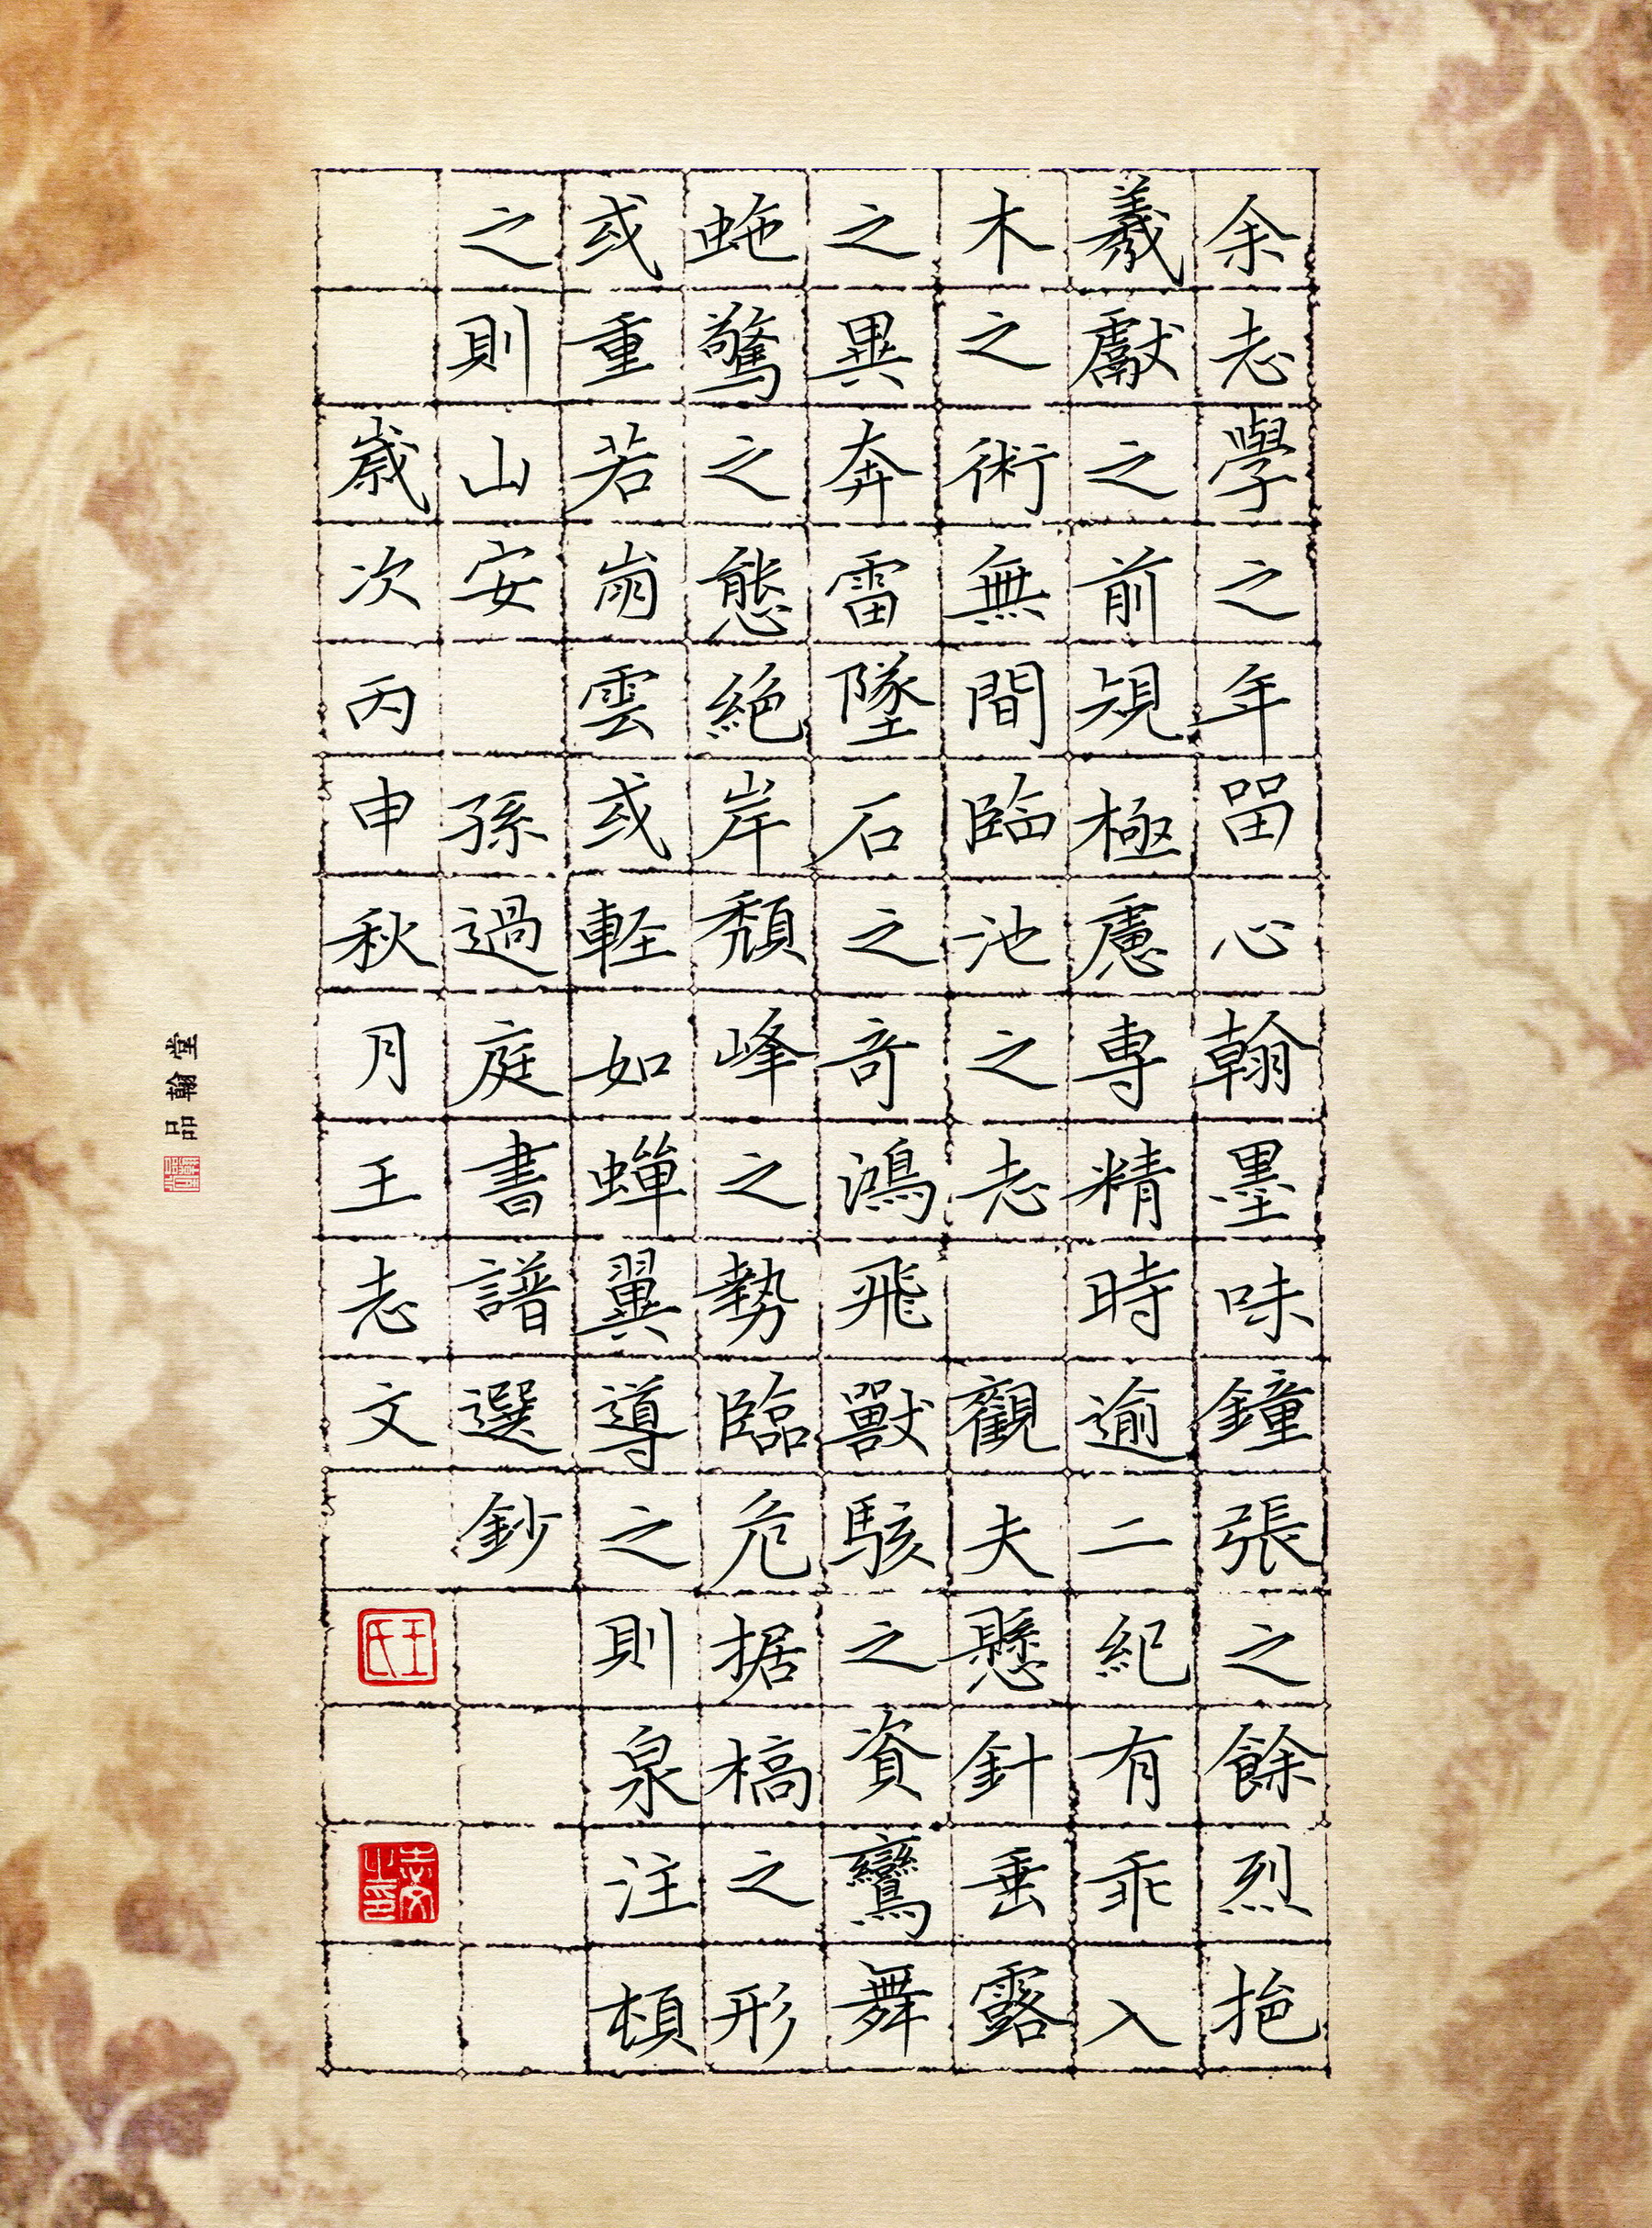 余志學之年畱心翰墨味鐘張之餘烈挹
羲獻之前規極慮專精時逾二紀有乖入
木之術無間臨池之志 觀夫懸針垂露
之異奔雷墜石之奇鴻飛獸駭之資鸞舞
虵驚之態絕岸頹峰之勢臨危据槁之形
或重若崩雲或輕如蟬翼導之則泉注頓
之則山安 孫過庭書譜選鈔
歲次丙申秋月王志文
王氏
志文之印
品翰堂